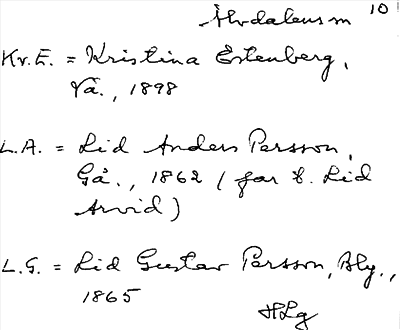 Älvdalens m 10
Kr.E. = Kristina Estenberg,
Vå., 1898
L.A. = Lid Anders Persson,
Gå., 1862 (far t. Lid
Arvid)
L.G. = Lid Gustav Persson, Bly.,
1865
HLg